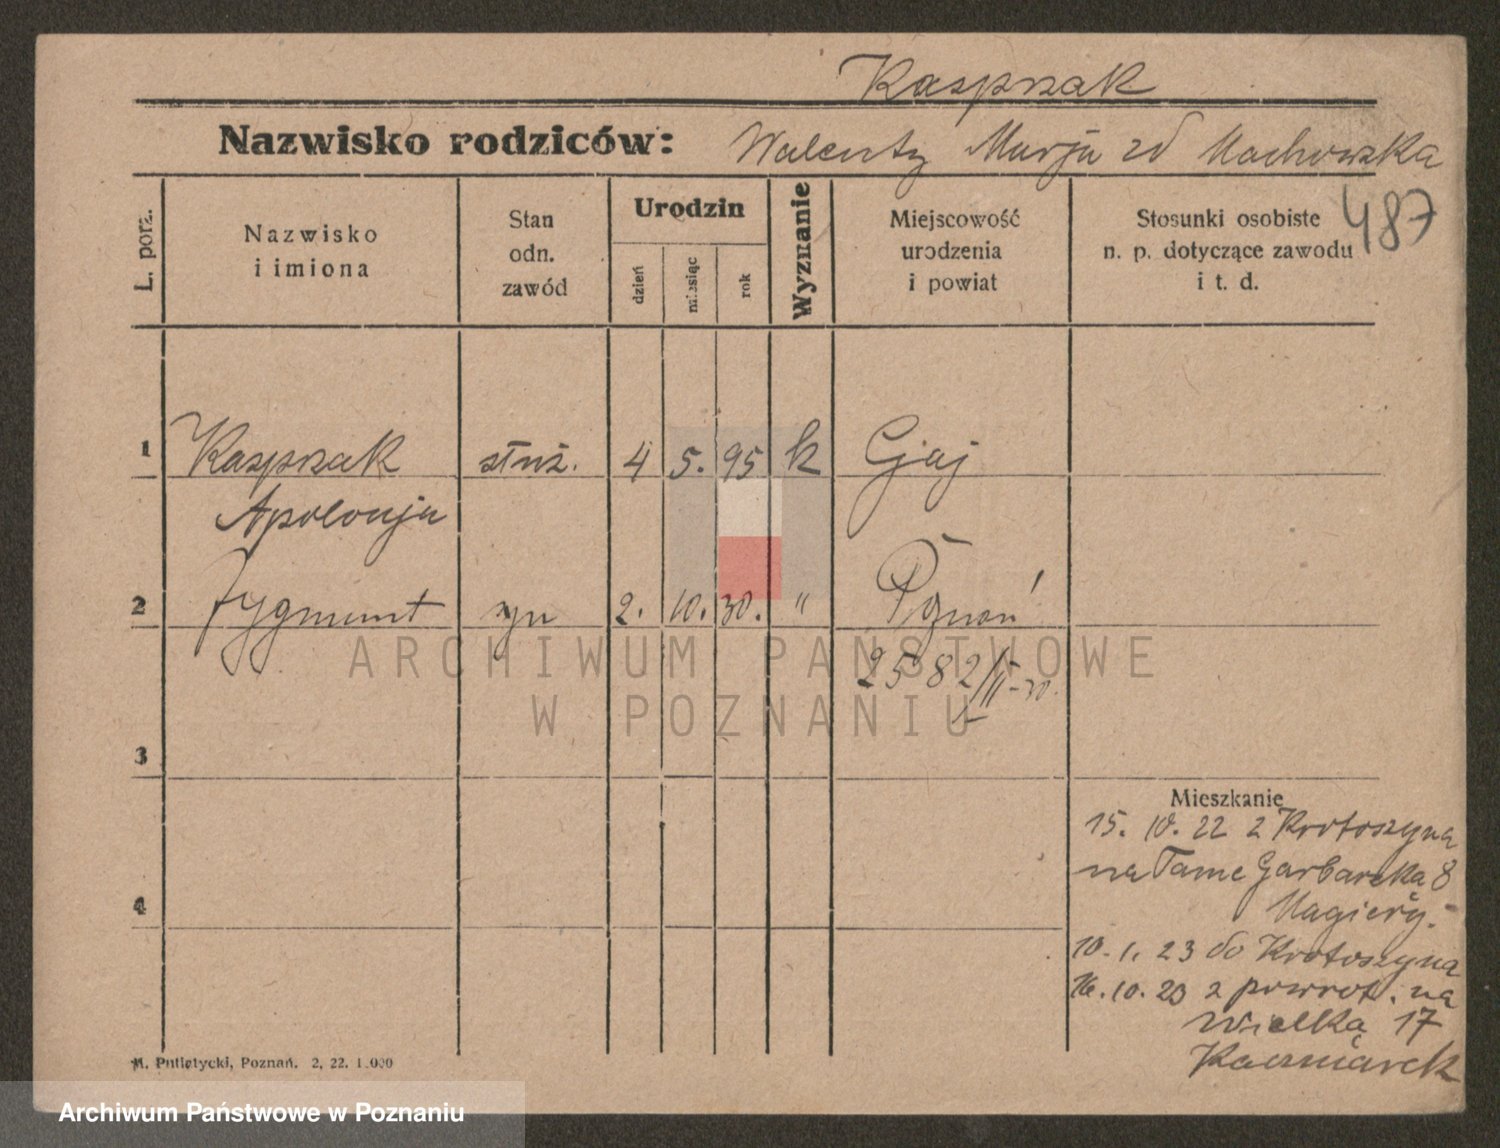 Kasprzak
Nazwisko rodziców: Walenty Marja zd Machowska
487
L. porz.
Nazwisko
i imiona
Stan
odn.
zawód
Urodzin
dzień
miesiąc
rok
Wyznanie
Miejscowość
urodzenia
i powiat
Stosunki osobiste
n. p. dotyczące zawodu
i t. d.
1 Kasprzak służ. 4 5. 95 k Gaj
Apolonja
2 Zygmunt syn 2. 10. 30. " Poznań
2582/II-30.
ARCHIWUM PAŃSTWOWE
W POZNANIU
3
Mieszkanie
15. 10. 22 z Krotoszyna
na Tamę Garbarską 8
4
Magiery.
10. 1. 23 do Krotoszyna
16. 10. 23 z powrot. na
Wielką 17
Kaczmarek
M. Putiatycki, Poznań. 2, 22. 1.000
Archiwum Państwowe w Poznaniu